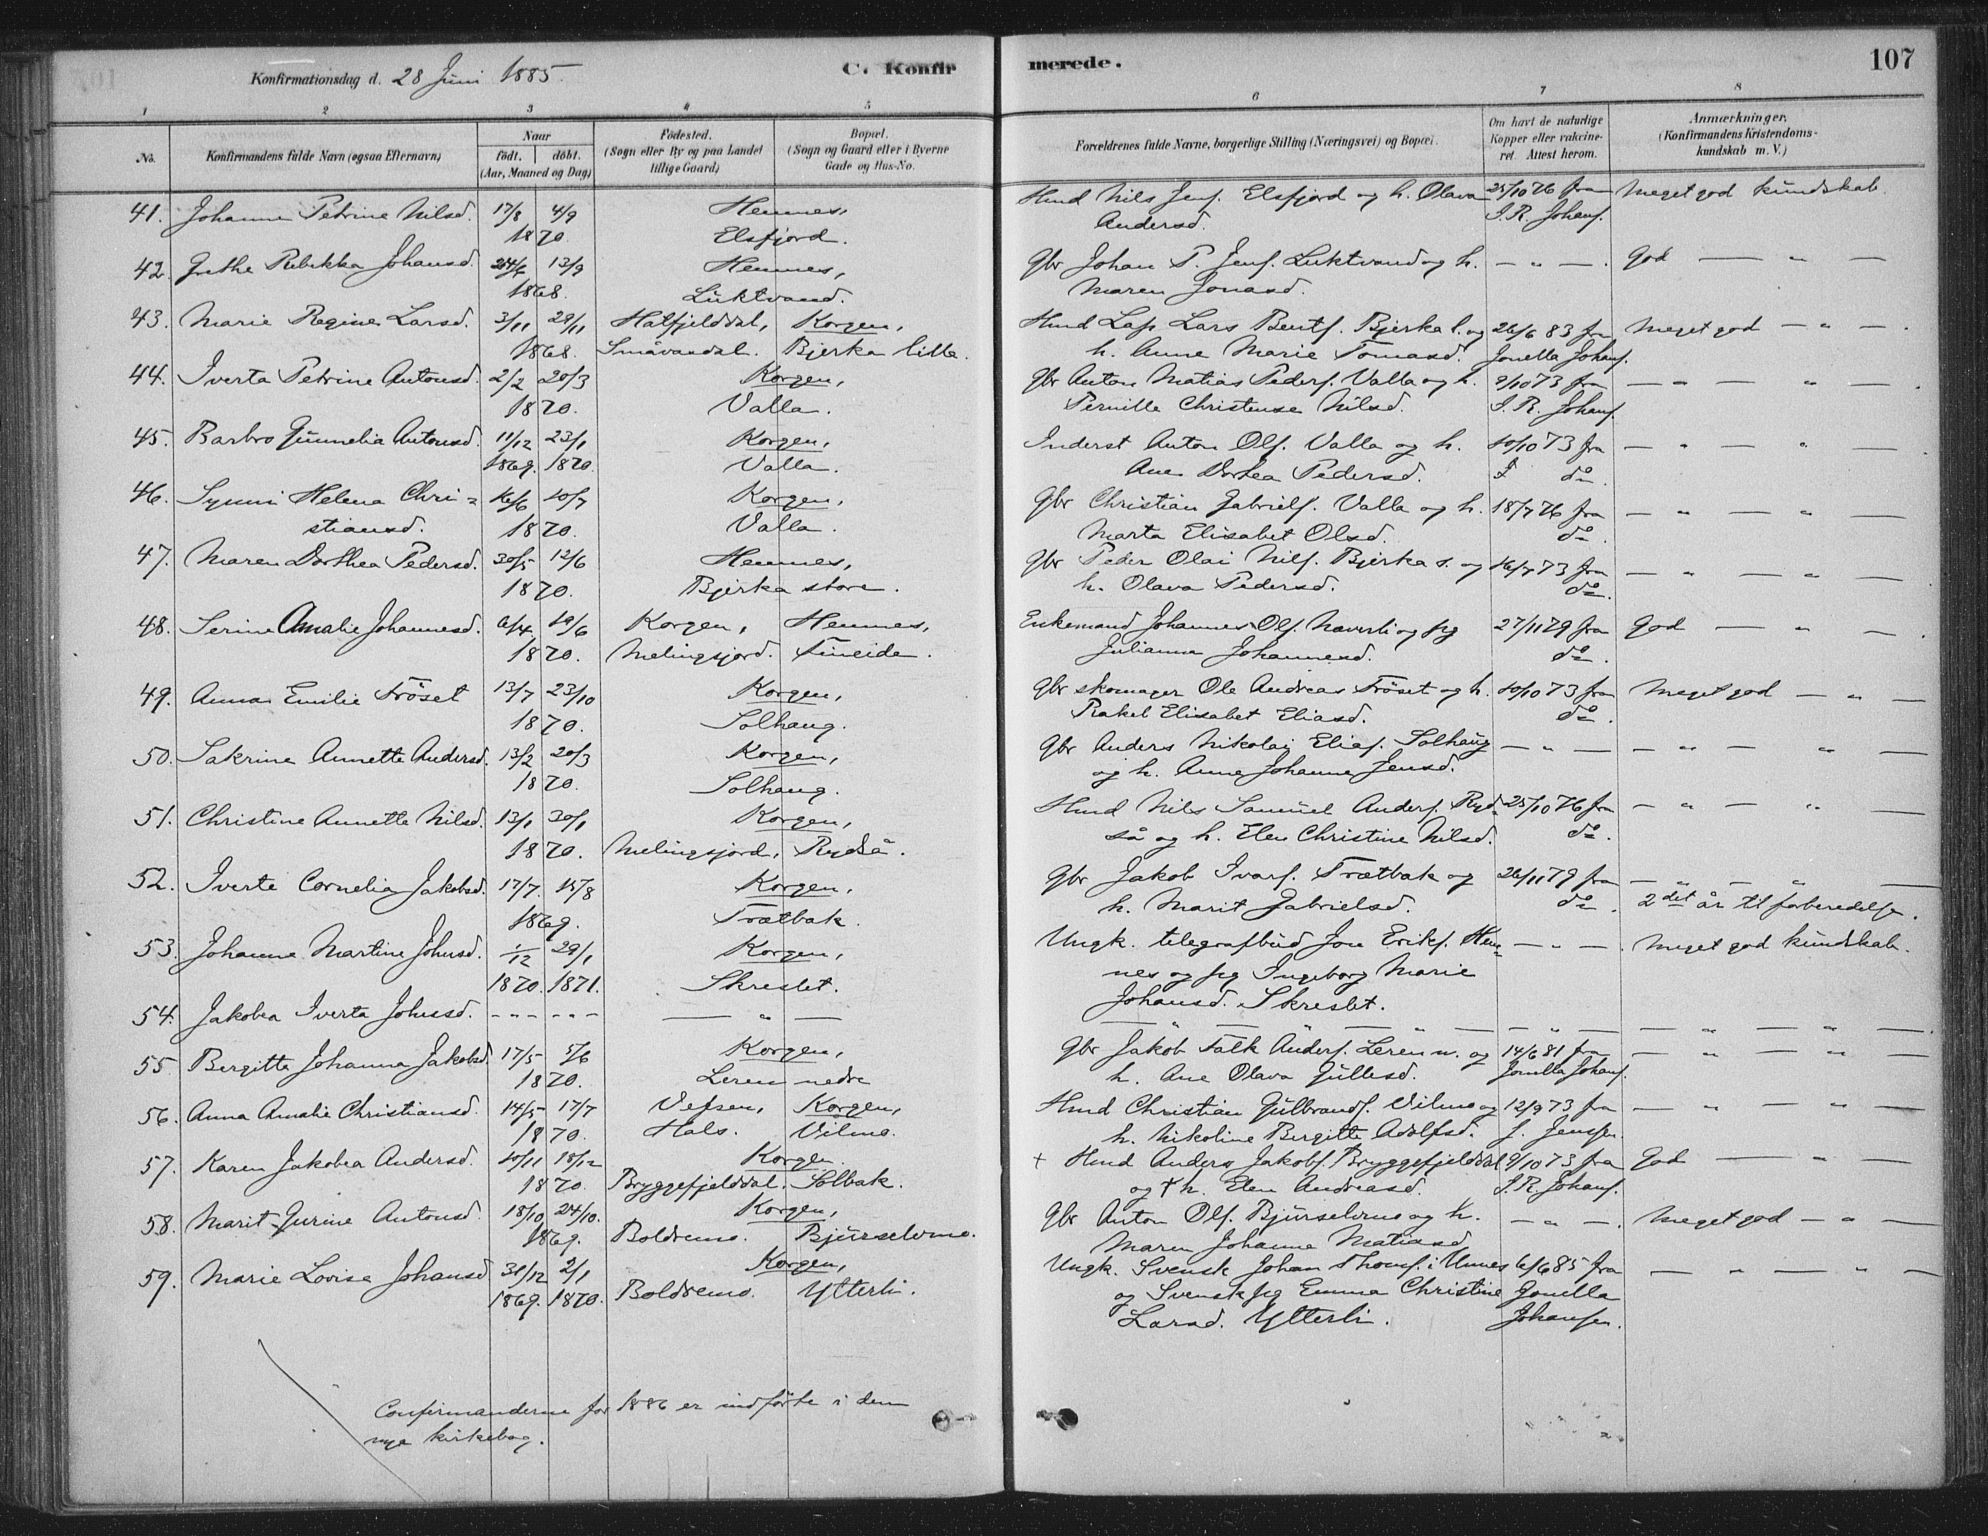 Konfirmationsdag d. 28 Juni 1885.
C. Konfirmerede.
107
1 2 3 4 5 6 7 8
No.
Konfirmandens fulde Navn (ogsaa Efternavn)
Naar
födt. döbt.
(Aar, Maaned og Dag)
Födested.
(Sogn eller By og paa Landet
tillige Gaard)
Bopæl.
(Sogn og Gaard eller i Byerne
Gade og Hus-No.
Forældrenes fulde Navne, borgerlige Stilling (Næringsvei) og Bopæl.
Om havt de naturlige
Kopper eller vakcine-
ret. Attest herom.
Anmærkninger.
(Konfirmandens Kristendoms-
kundskab m. V.)
41. Johanna Petrine Nilsd. 17/8 4/9 Hemnes, Hmd Nils Jens. Elsfjord og h. Olava 25/10 76 fra Meget god kundskab.
1870. Elsfjord. Andersd. I. R. Johans.
42. Grethe Rebekka Johansd. 24/6 13/9 Hemnes, Gbr Johan P. Jens. Luktvand og h. — „ — . God — „ —
1868. Luktvand. Maren Jonasd.
43. Marie Regine Larsd. 3/11 29/11 Hatfjelddal, Korgen, Hmd Lap Lars Bents. Bjerka l. og 26/6 83 fra Meget god — „ — .
1868. Småvasdal. Bjerka lille. h. Anne Marie Tomasd. Jonella Johans.
44. Iverta Petrine Antonsd. 2/2 20/3 Korgen, Gbr Anton Matias Peders. Valla og h. 9/10 73 fra — „ — „ —
1870. Valla. Pernille Christense Nilsd. I. R. Johans.
45. Barbro Gunnelia Antonsd. 11/12 23/1 Korgen, Inderst Anton Ols. Valla og h. 10/10 73 fra — „ — „ —
1869. 1870. Valla. Ane Dortea Pedersd. do.
46. Synni Helena Chri= 16/6 10/7 Korgen, Gbr Christian Gabriels. Valla og h. 18/7 76 fra — „ — „ —
stiansd. 1870. Valla. Marta Elisabet Olsd. do.
47. Maren Dorthea Pedersd. 30/5 12/6 Hemnes, Gbr Peder Olai Nils. Bjerka s. og 16/7 73 fra — „ — „ —
1870. Bjerka store. h. Olava Pedersd. do.
48. Serine Amalie Johannesd. 6/4 19/6 Korgen, Hemnes, Enkemand Johannes Ols. Naverli og Pg 27/11 79 fra God — „ — .
1870. Melingsjord. Fineide. Julianna Johannesd. do.
49. Anna Emilie Fröset 13/7 23/10 Korgen, Gbr skomager Ole Andreas Fröset og h. 10/10 73 fra Meget god — „ —
1870. Solhaug. Rakel Elisabet Eliasd. do.
50. Sakrine Annette Andersd. 13/2 20/3 Korgen, Gbr Anders Nikolai Elias. Solhaug — „ — — „ — „ —
1870. Solhaug. og h. Anne Johanna Jensd.
51. Christine Annette Nilsd. 13/1 30/1 Korgen, Hmd Nils Samuel Anders. Ryd= 25/10 76 fra — „ — „ —
1870. Melingsjord, Rydså. så og h. Elen Christine Nilsd. do.
52. Iverte Cornelia Jakobsd. 17/7. 15/8 Korgen, Gbr Jakob Ivars. Trætbak og 26/11 79 fra — „ — „ —
1869. Trætbak. h. Marit Gabrielsd. do. 2det år til forberedelse.
53. Johanna Martine Johnsd. 1/12 29/1 Korgen, Ungk. telegrafbud Jon Eriks. Hem= — „ — . Meget god kundskab.
1870. 1871. Skreslet. nes og Pg Ingeborg Marie
Johansd. Skreslet.
54. Jakobea Iverta Johnsd. - „ - - „ - — „ — — „ — „ — — „ — — „ — „ —
55. Bergitte Johanna Jakobsd. 17/5 5/6 Korgen, Gbr Jakob Falk Anders. Leren n. og 14/6 81 fra — „ — „ —
1870. Leren nedre h. Ane Olava Gullesd. Jonella Johans.
56. Anna Amalie Christiansd. 14/5 17/7 Vefsen, Korgen, Hmd Christian Gulbrands. Vilmo og 12/9 73 fra — „ — „ —
1870. Hals. Vilmo. h. Nikoline Bergitte Adolfsd. J. Jensen.
57. Karen Jakobea Andersd. 10/11 18/12 Korgen † Hmd Anders Jakobs. Bryggefjelddal 9/10 73 fra God — „ —
1870. Bryggefjelddal. Solbak. og † h. Elen Andreasd. I. R. Johans.
58. Marit Gurine Antonsd. 18/10 24/10. Korgen, Gbr Anton Ols. Bjurselvmo og h. — „ — . Meget god — „ —
1869. Boldremo. Bjurselvmo. Maren Johanna Matiasd.
59. Marie Lovise Johansd 31/12 2/1 Korgen, Ungk. Svensk Johan Thoms. i Umnes 6/6 85 fra — „ — „ —
1869. 1870. Boldremo. Ytterli. og Svensk Pg Emma Christine Jonella
Larsd. Ytterli. Johansen.
Confirmanderne for 1886 er indförte i den
nye kirkebog.